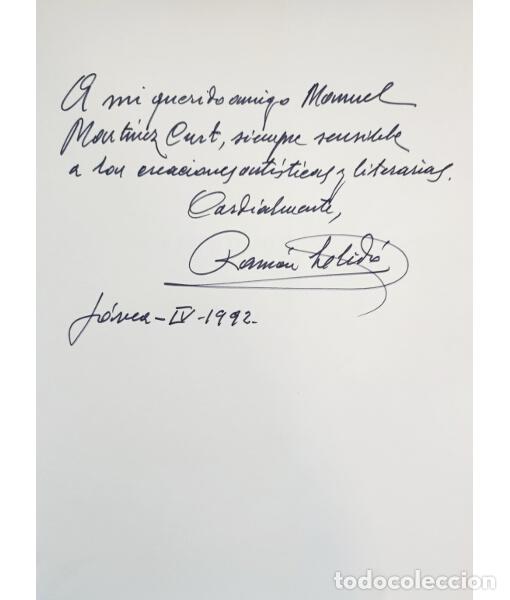 A mi querido amigo Manuel
Martínez Curt, siempre sensible
a las creaciones artísticas y literarias.
Cordialmente,
Ramón
Jávea-IV-1992.
todocoleccion